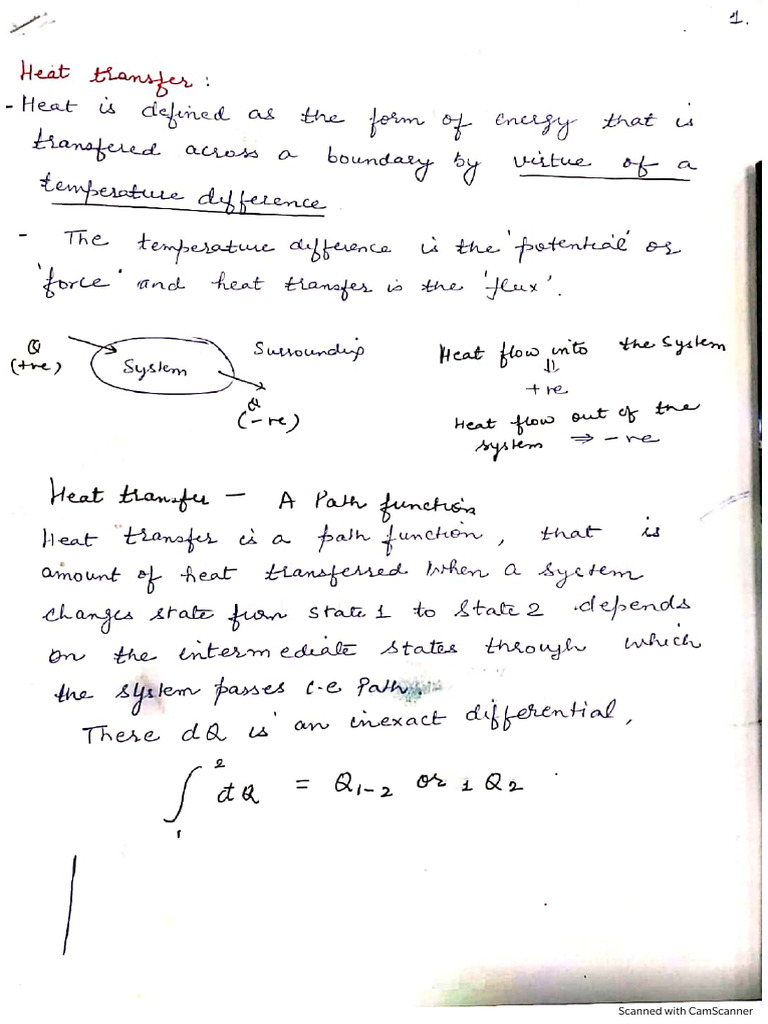 1.
Heat transfer :
- Heat is defined as the form of energy that is
transfered across a boundary by virtue of a
temperature difference
- The temperature difference is the 'potential' or
'force' and heat transfer is the 'flux'.
Q
(+ve)
System
Surroundip
Q
(-ve)
Heat flow into the System
⇓
+ve
Heat flow out of the
system ⇒ -ve
Heat transfer - A Path function
Heat transfer is a path function, that is
amount of heat transferred when a system
changes state from state 1 to State 2 depends
on the intermediate states through which
the system passes i.e Path.
There dQ is an inexact differential,
∫₁² dQ = Q₁₋₂ or ₁Q₂
Scanned with CamScanner